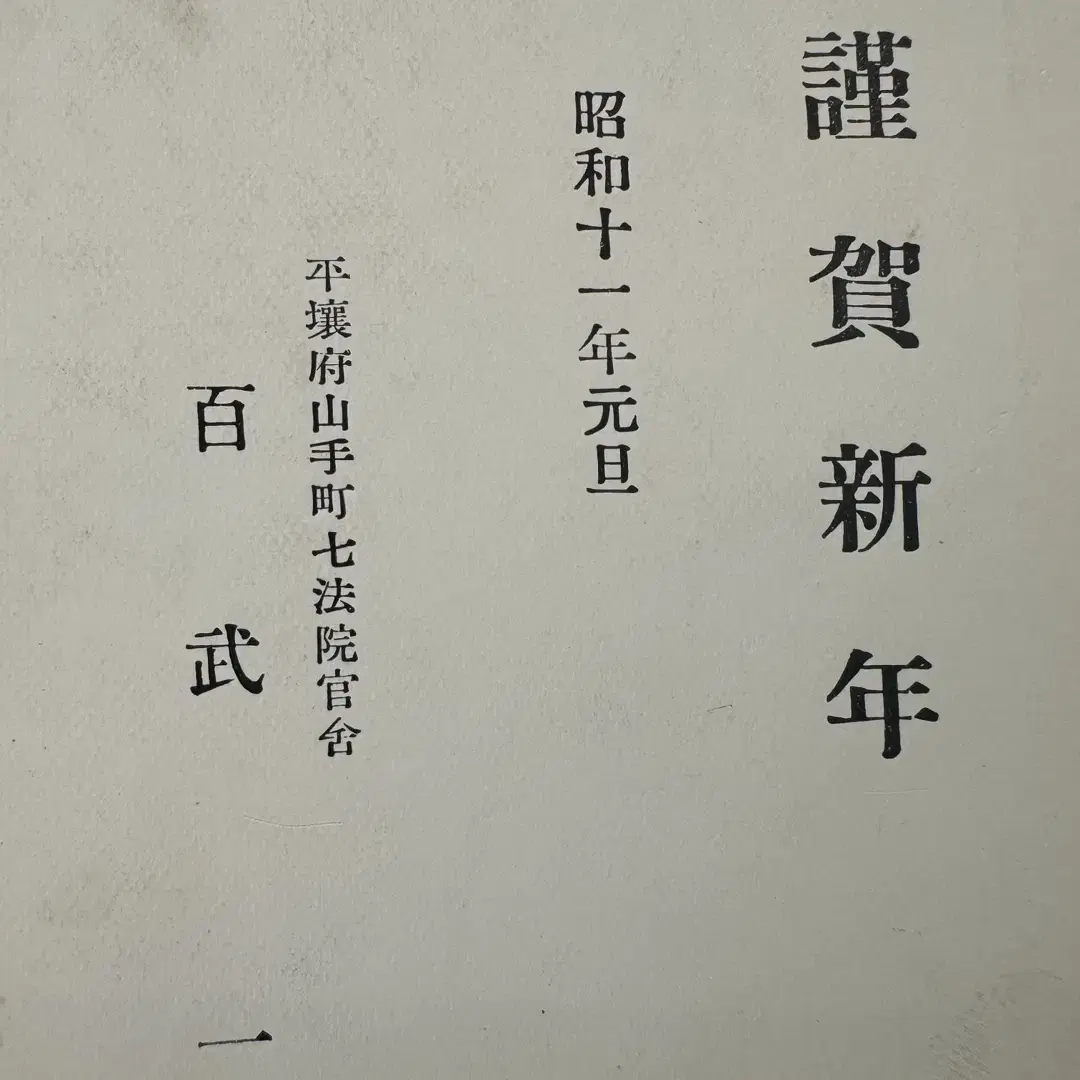 謹賀新年
昭和十一年元旦
平壤府山手町七法院官舍
百武一